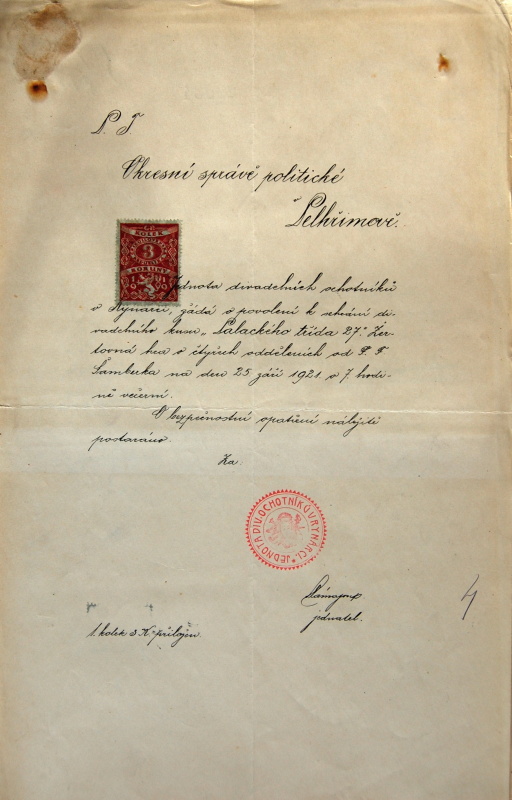 P. T.
Okresní správě politické
v Pelhřimově.
KOLEK
3
KORUNY
Jednota divadelních ochotníků
v Rynárci, žádá o povolení k sehrání di-
vadelního kusu „Palackého třída 27." Žer-
tovná hra o čtyřech odděleních od F. F.
Šamberka na den 25. září 1921 o 7. hodi-
ně večerní.
O bezpečnostní opatření náležitě
postaráno.
Za:
JEDNOTA DIV. OCHOTNÍKŮ V RYNÁRCI.
jednatel.
1. kolek 3 K. přiložen.
4